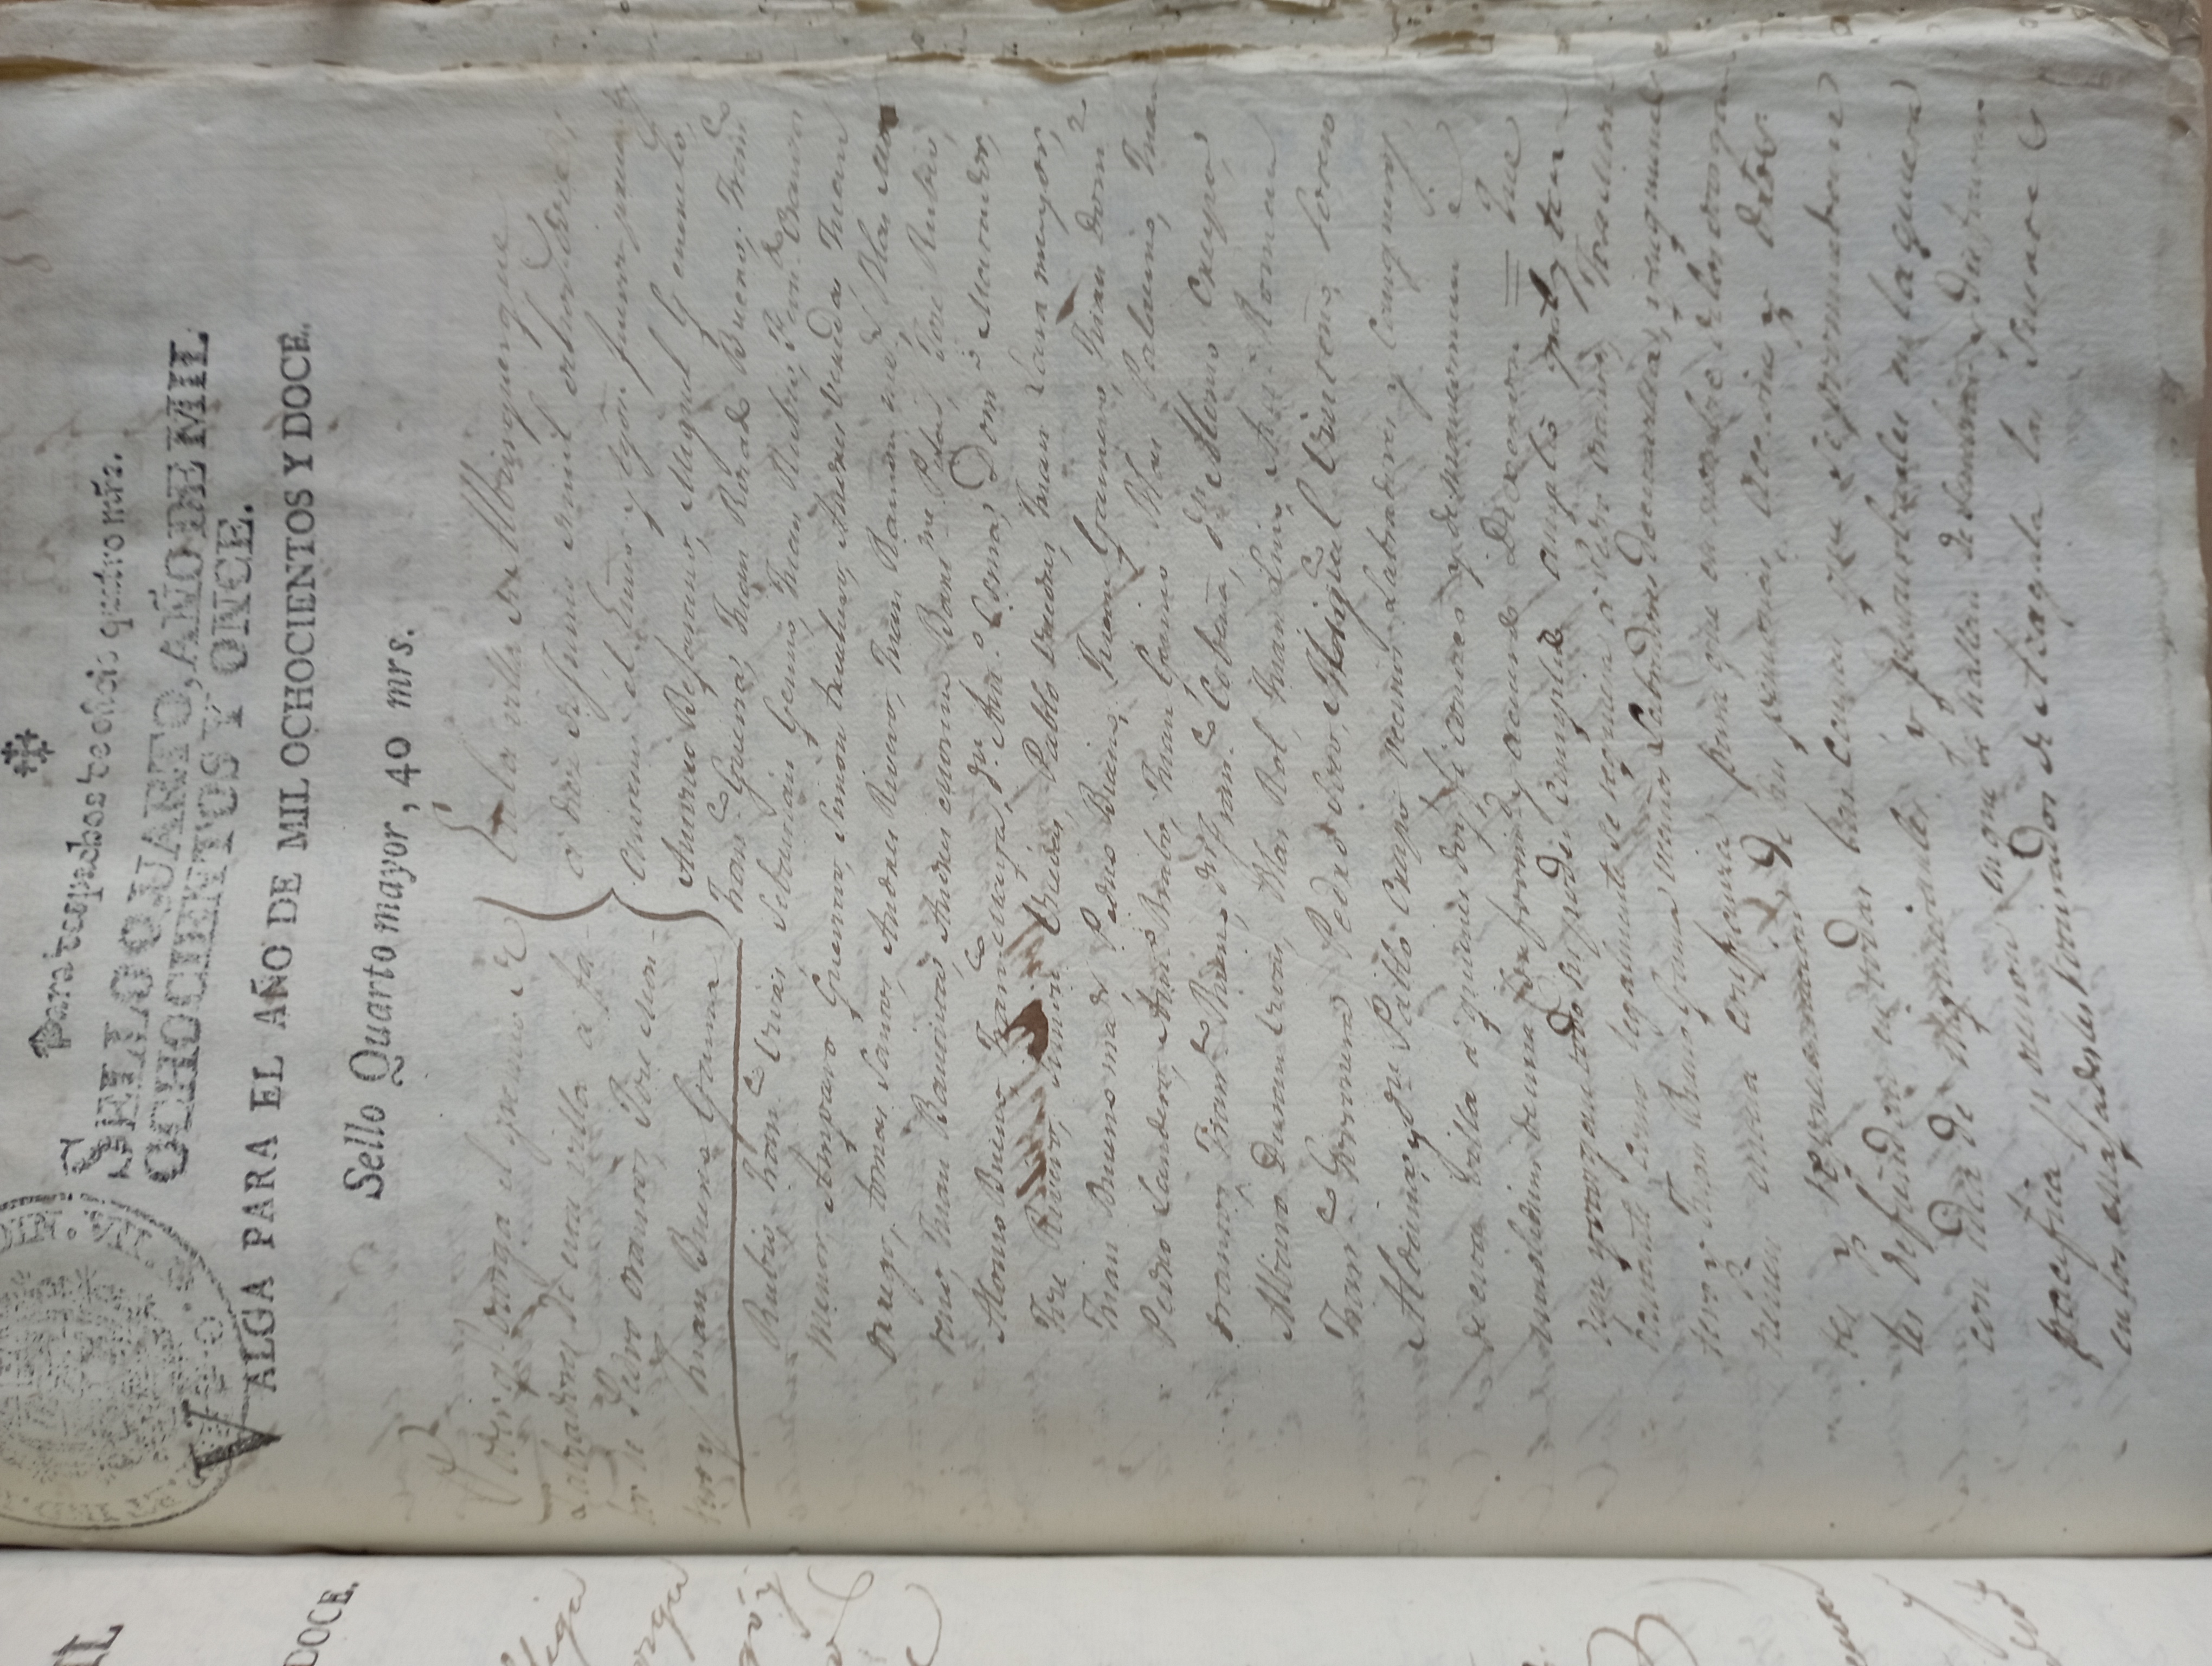 Para despachos de oficio quatro mrs.
SELLO QUARTO, AÑO DE MIL
OCHOCIENTOS Y ONCE.
VALGA PARA EL AÑO DE MIL OCHOCIENTOS Y DOCE.
Sello Quarto mayor, 40 mrs.
DOCE.
Poder qe. otorga el gremio de
Labradores de esta villa a fa-
bor de Pedro orantos, Jose Mon-
tero y Juan Bueno Gama
En la villa de Alburquerque
a diez de Junio de mil ochos. doce
ante mi el Essno y tgos. fueron presentes
Antonio Besarano, Miguel Generelo,
Franco. Guerra, Juan Rosado Bueno, Franco.
Rubio, Franco. Vivas, Sebastian Genio, Juan Rubio, Ferndo. Orantos
menor, Amparo Guerrero, Simon truchero, Andres Venedas, Juan
orrego, tomas Santos, Andres Rivero, Juan Ramon, Blas Mo
reno, Juan Bautista, Andres Moreno, Barme. Pulas, Jose Rubio,
Alonso Bueno, Franco. Maya, dn. Anto. Osma, Domo. Matador,
Jose Rivero, Simon Vivas, Pablo, Juan Lara mayor,
Juan Bueno, Pedro Bueno, Juan Gamero, Juan Domz.
Pedro Sandero, Anto. Brabo, Juan Genio, Blas Palatino, Juan
orantos, Franco. Bueno, dn. Franco. Cobeña, dn. Alonso Crespo,
Albaro Duran Vivas, Blas Rol, Juan, Anto. Roman
Franco. Gorronera, Pedro Soto, Miguel Vinteño, Lorenzo
Aldana, y dn. Pablo Crespo vecinos Labradores y
de esta villa a quienes doy fe conozco y de mancomun e
insolidum de una conformd. y acuerdo Dixeron = Que
dan y otorgan todo su poder cumplido amplio gral y tan
bastante como legalmente se requiera a Pedro Orantos, Jose Mon-
tero y Juan Bueno Gama vecinos Labradores de esta villa, y en quienes
tienen entera confianza para que en nombre de los otorgan
tes y representacion de sus personas, acciones y dros
les defiendan en todas las causas que se promuevan
con idea de inquietarles y perturbarles en la quieta
pacifica posesion en que se hallan de sembrar y disfrutar
en los de Azagala las